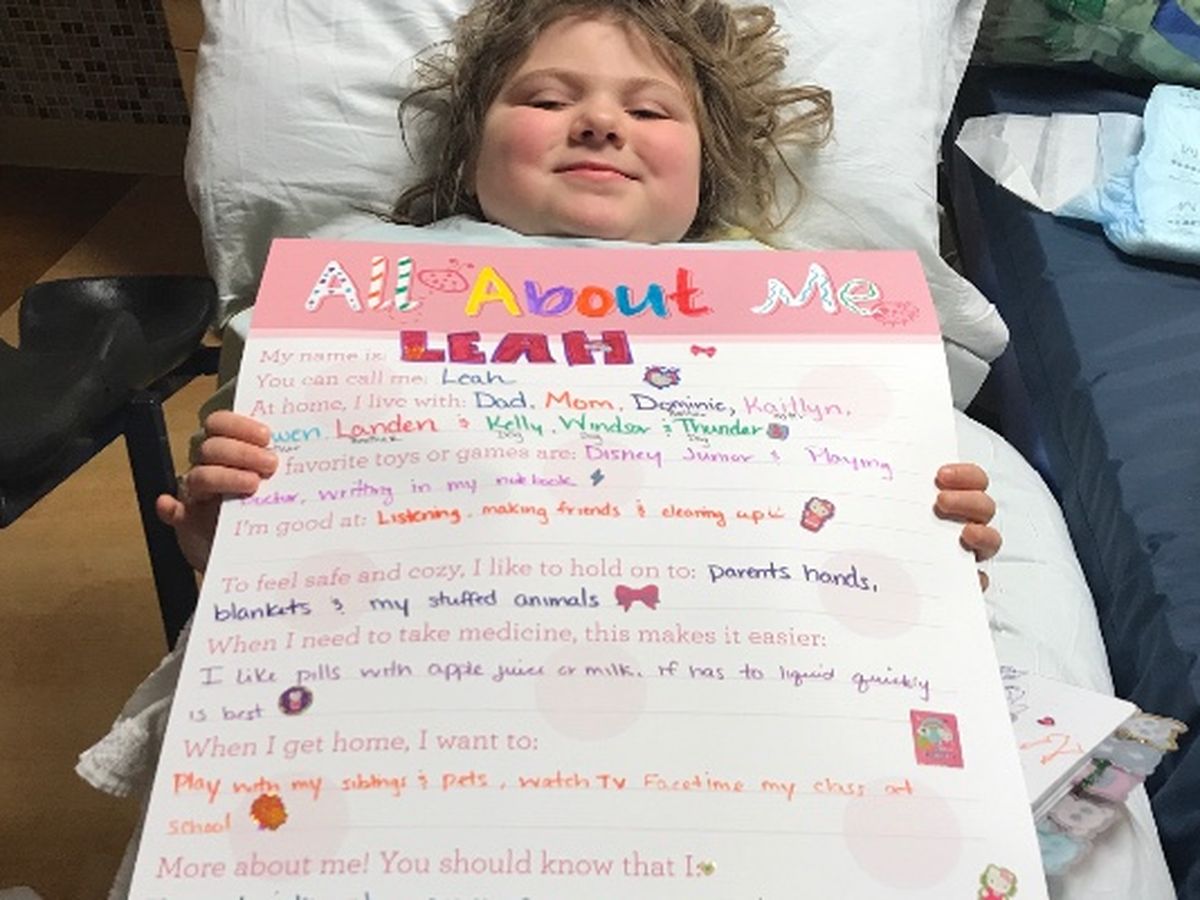 All About Me
My name is: LEAH
You can call me: Leah
At home, I live with: Dad, Mom, Dominic, Kaitlyn,
wen, Landen & Kelly, Windsor & Thunder
Brother Dog Dog Dog
favorite toys or games are: Disney Junior & Playing
Doctor, writing in my notebook
I'm good at: Listening, making friends & clearing up
To feel safe and cozy, I like to hold on to: parents hands,
blankets & my stuffed animals
When I need to take medicine, this makes it easier:
I like pills with apple juice or milk. if has to liquid quickly
is best
When I get home, I want to:
Play with my siblings & pets, watch TV Facetime my class at
school
More about me! You should know that I: